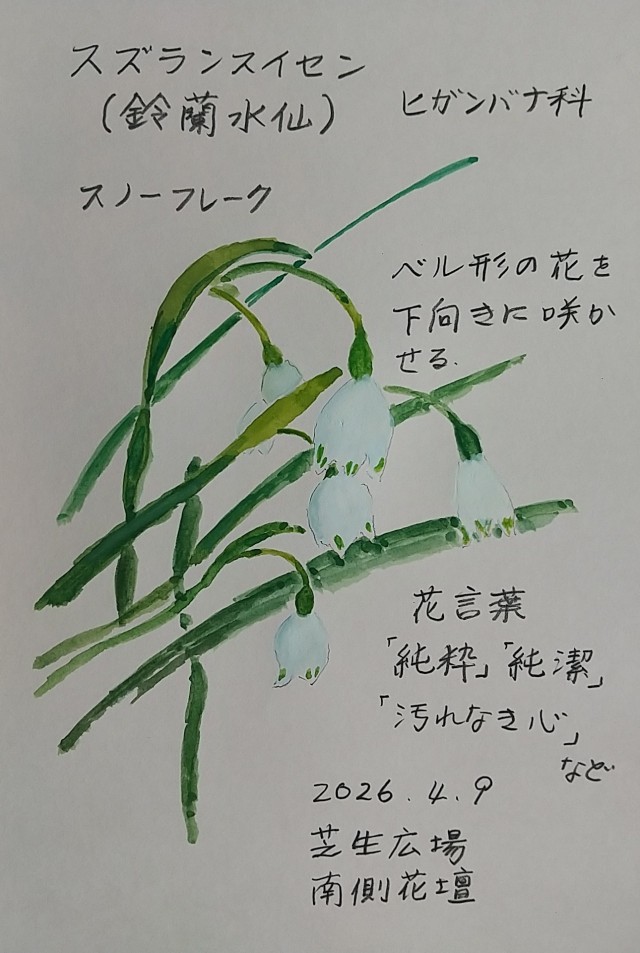 スズランスイセン
(鈴蘭水仙)
ヒガンバナ科
スノーフレーク
ベル形の花を
下向きに咲か
せる.
花言葉
「純粋」「純潔」
「汚れなき心」
など
2026.4.9
芝生広場
南側花壇